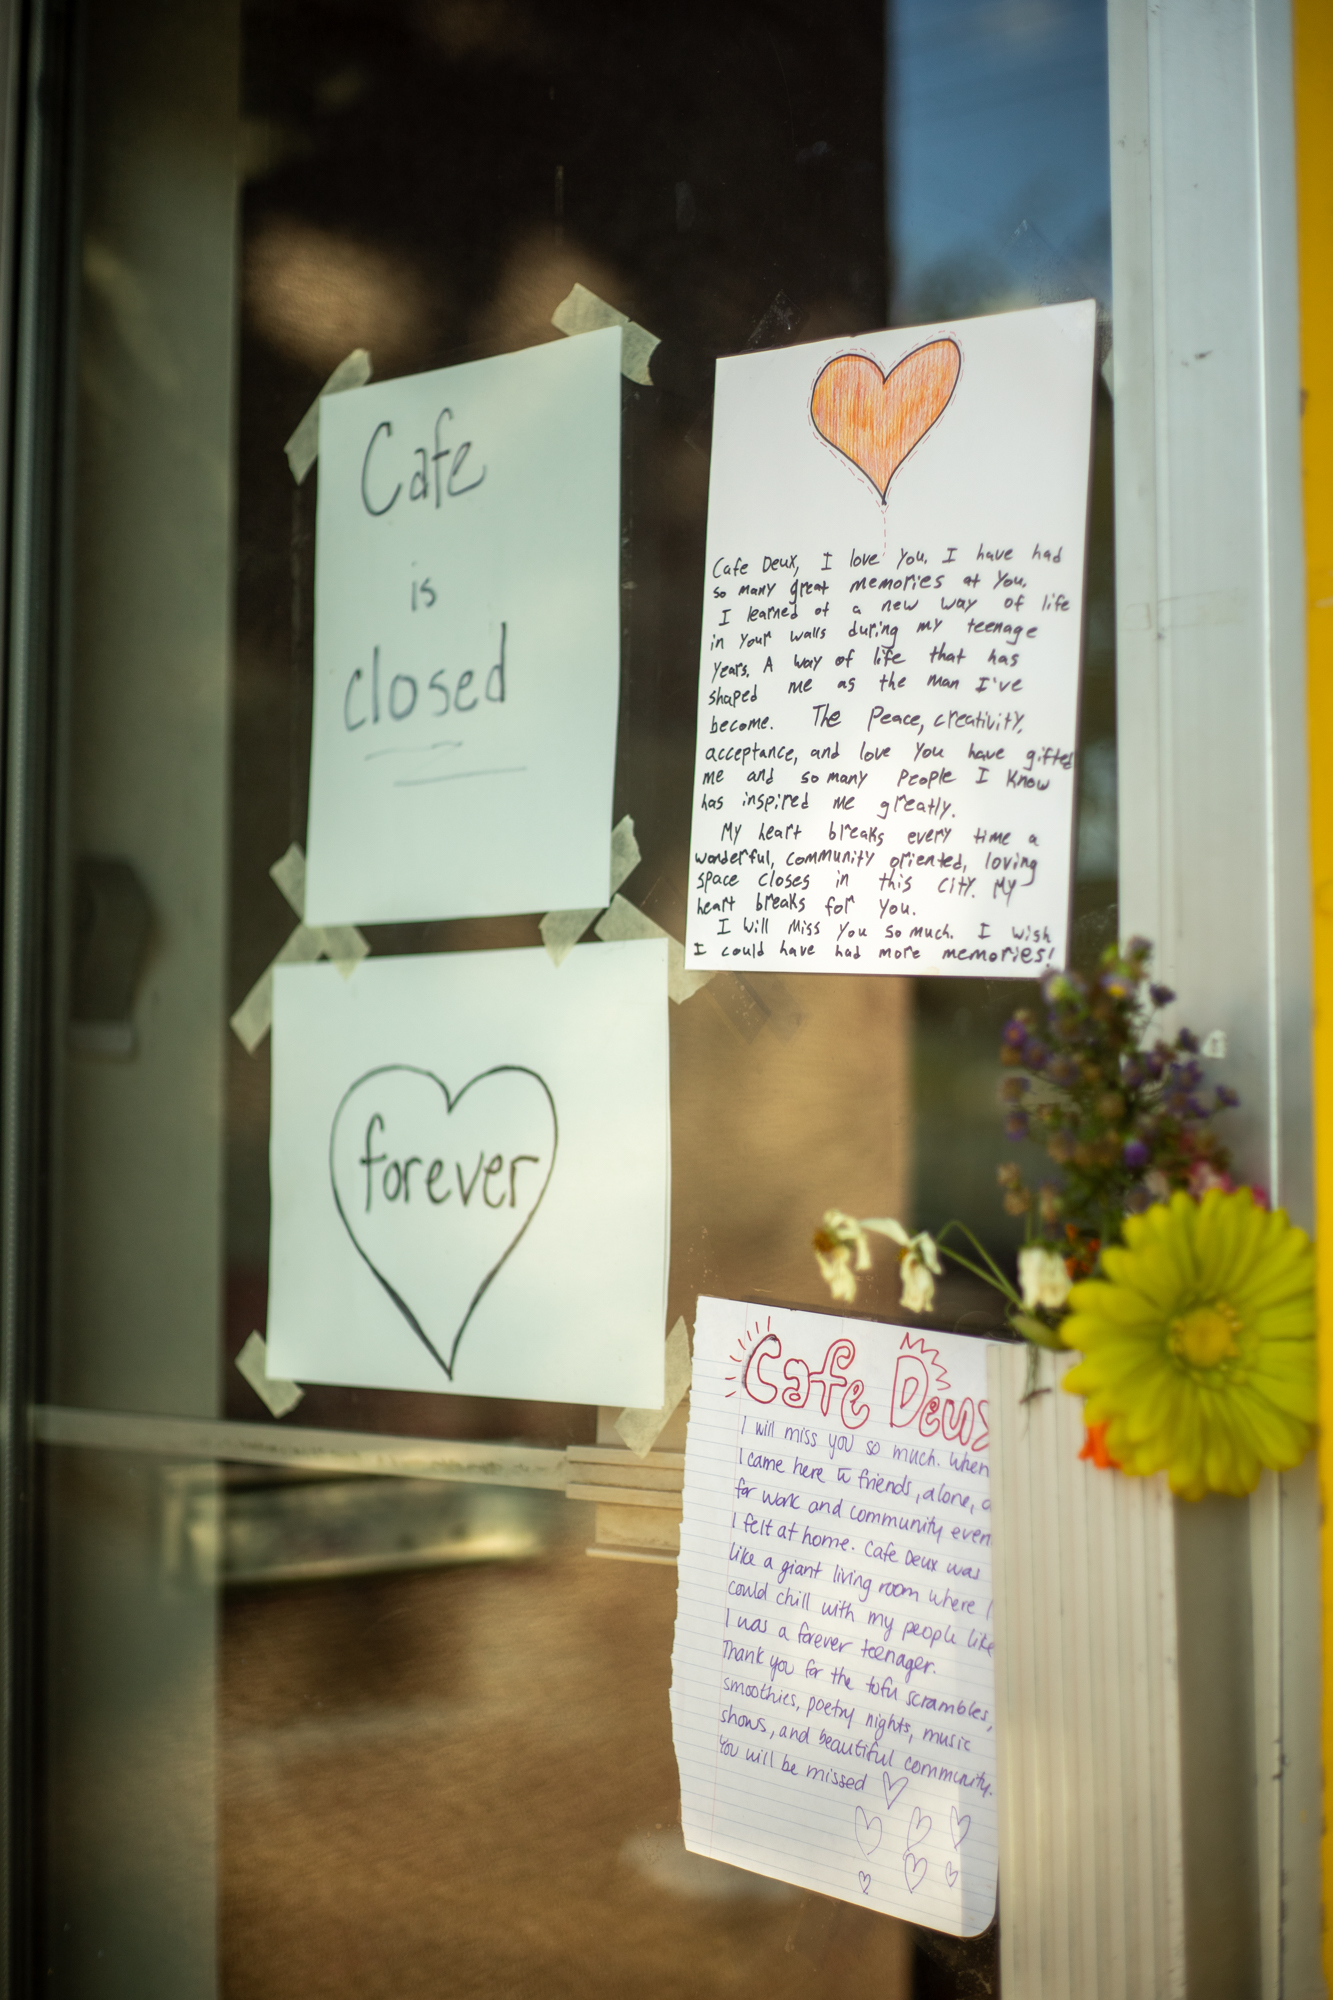 Cafe
is
closed
forever
Cafe Deux, I love you. I have had
so many great memories at you.
I learned of a new way of life
in your walls during my teenage
years. A way of life that has
shaped me as the man I've
become. The peace, creativity,
acceptance, and love you have gifted
me and so many people I know
has inspired me greatly.
My heart breaks every time a
wonderful, community oriented, loving
space closes in this city. My
heart breaks for you.
I will miss you so much. I wish
I could have had more memories!
Cafe Deux
I will miss you so much. When
I came here w friends, alone,
for work and community even
I felt at home. Cafe Deux was
like a giant living room where I
could chill with my people like
I was a forever teenager.
Thank you for the tofu scrambles,
smoothies, poetry nights, music
shows, and beautiful community.
You will be missed